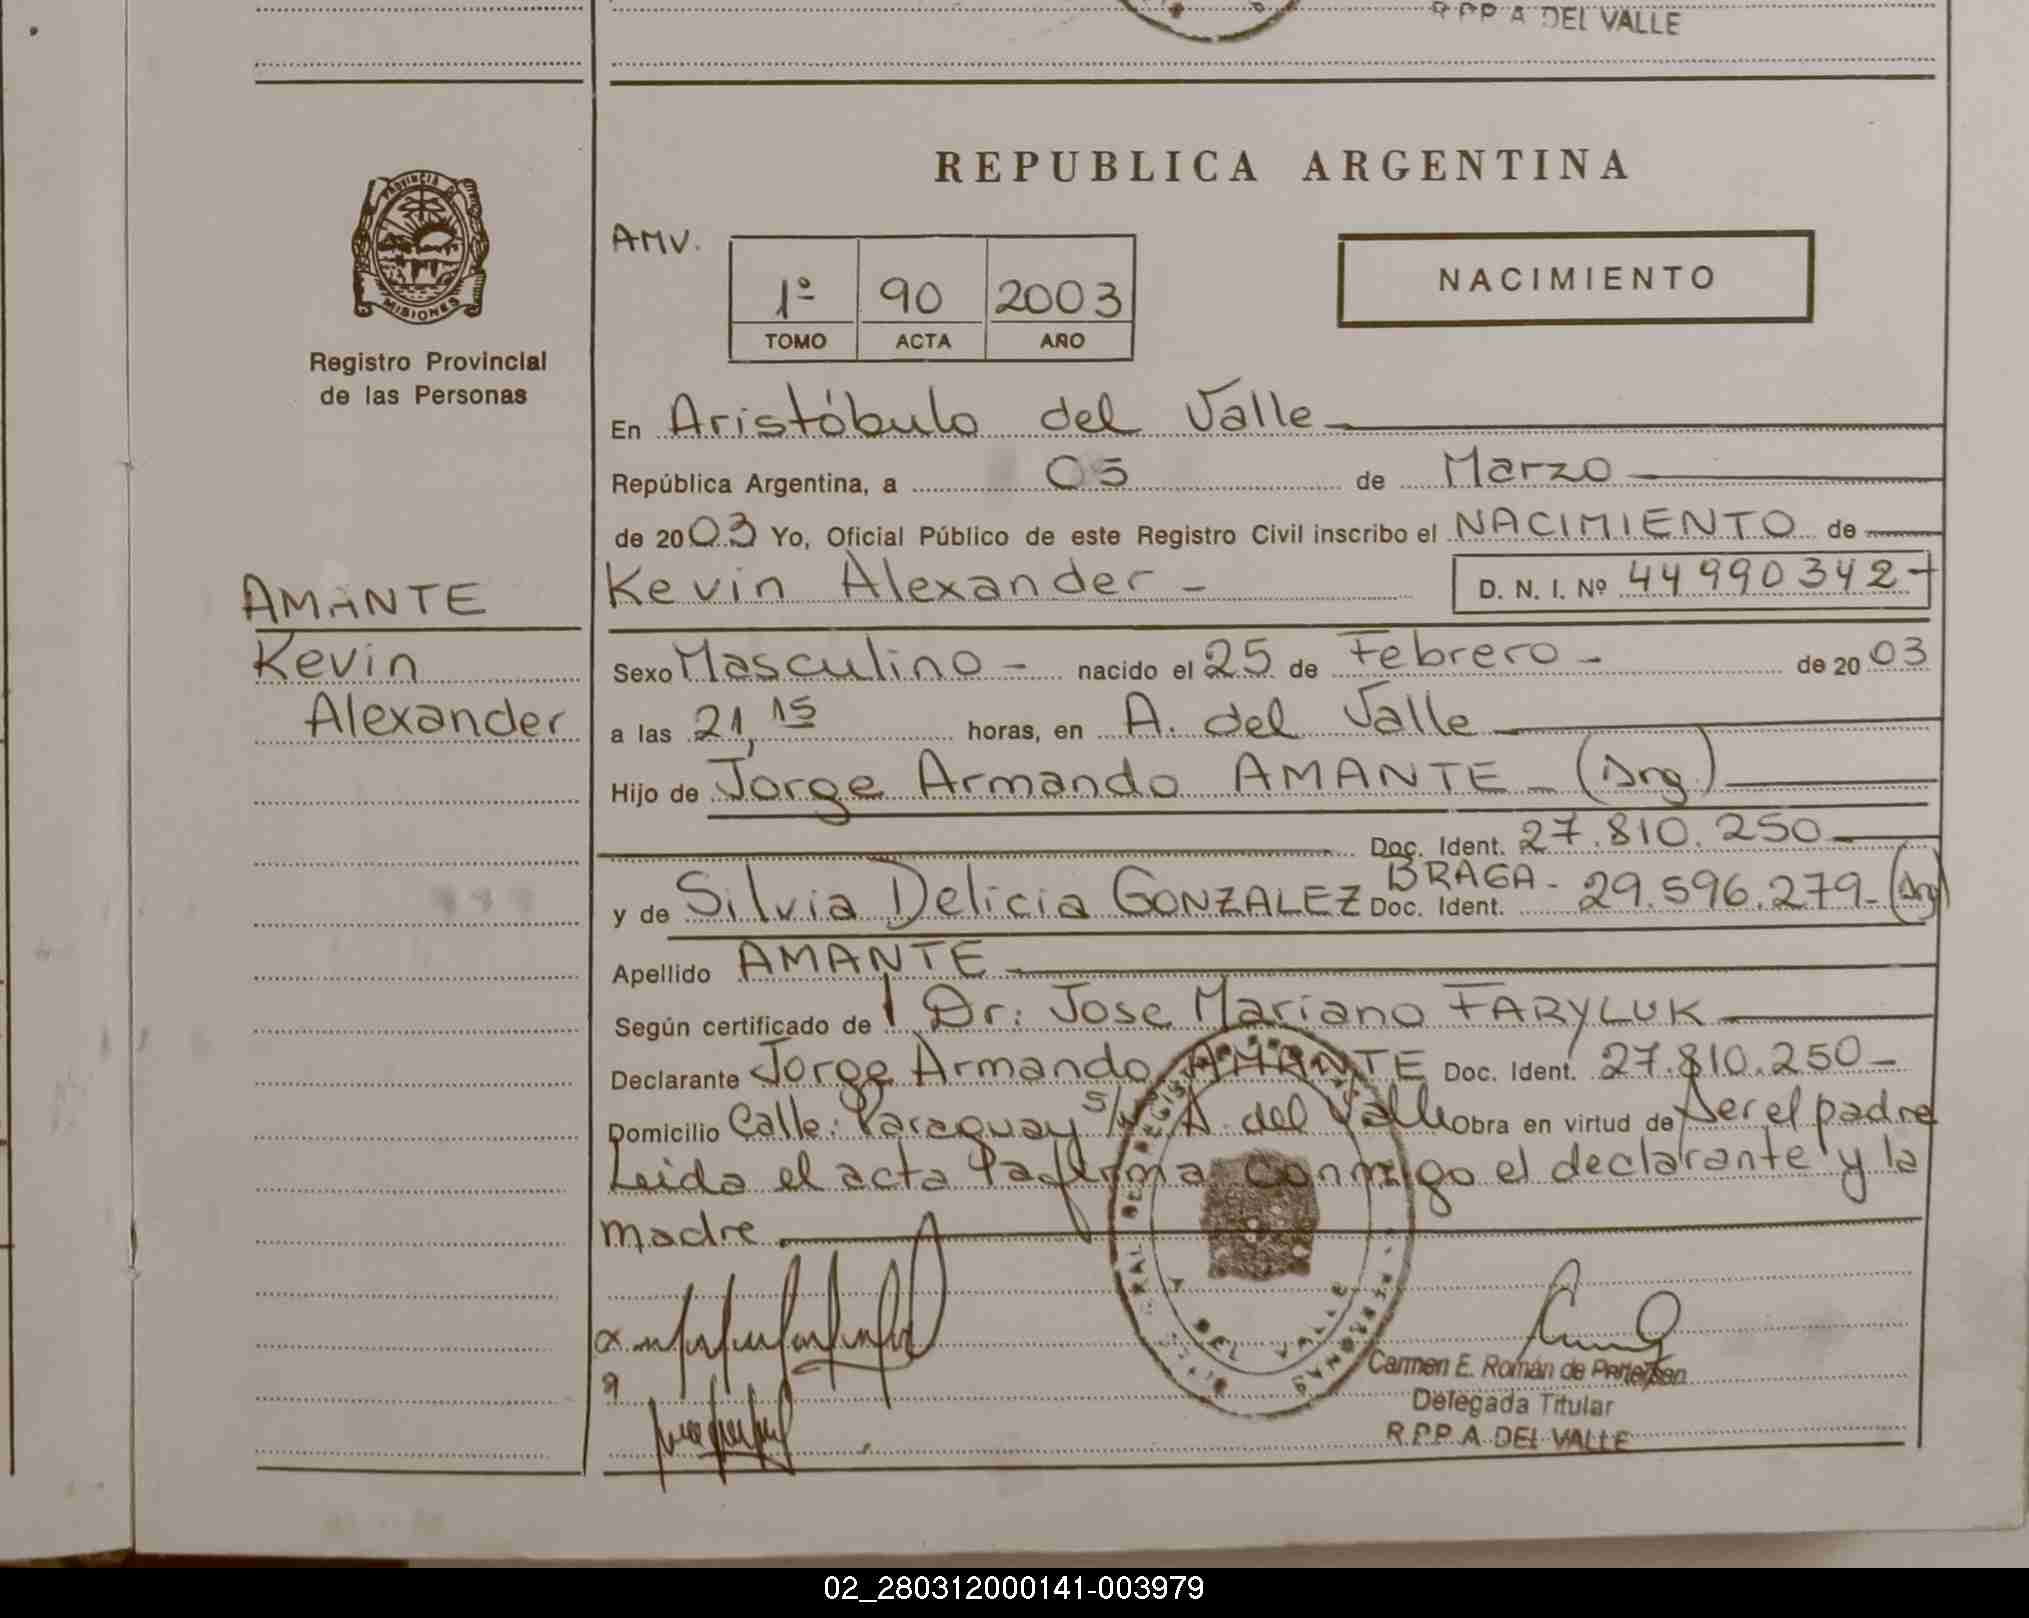 R.P.P. A DEL VALLE
REPUBLICA ARGENTINA
PROVINCIA DE
MISIONES
Registro Provincial
de las Personas
AMV.
1º 90 2003
TOMO ACTA AÑO
NACIMIENTO
En Aristóbulo del Valle
República Argentina, a 05 de Marzo
de 2003 Yo, Oficial Público de este Registro Civil inscribo el NACIMIENTO de
AMANTE
Kevin
Alexander
Kevin Alexander - D. N. I. Nº 44990342-
Sexo Masculino - nacido el 25 de Febrero - de 2003
a las 21,15 horas, en A. del Valle
Hijo de Jorge Armando AMANTE - (Arg.)
Doc. Ident. 27.810.250
y de Silvia Delicia GONZALEZ BRAGA - Doc. Ident. 29.596.279- (Arg)
Apellido AMANTE
Según certificado de Dr: Jose Mariano FARYLUK
Declarante Jorge Armando AMANTE Doc. Ident. 27.810.250-
Domicilio Calle: Paraguay S/ A. del Valle Obra en virtud de ser el padre
Leida el acta la firma conmigo el declarante y la
madre
A DEL VALLE
Carmen E. Román de Petersen
Delegada Titular
R.P.P. A. DEL VALLE
02_280312000141-003979